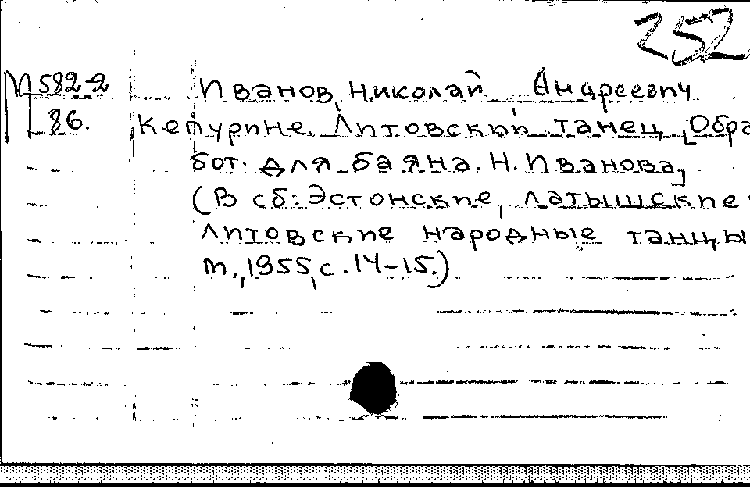 252
М 582-2 Иванов, Николай Андреевич
86. Кепурине. Литовский танец. [Обра-
бот. для баяна. Н. Иванова]
(В сб: Эстонские, латышские
литовские народные танцы
М., 1955, с. 14-15.)